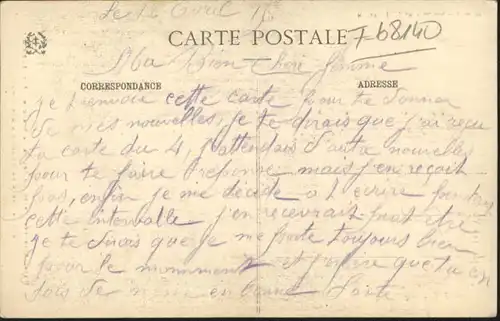 Le 12 Avril 15
F-68140
CARTE POSTALE
Ma bien chère femme
CORRESPONDANCE
ADRESSE
je t'envoie cette carte pour te donner
de mes nouvelles, je te dirais que j'ai reçu
ta carte du 4, j'attendais d'autre nouvelles
pour te faire réponse mais j'en reçoit
pas, enfin je me décide a t'écrire
cette intervalle j'en recevrait peut être
je te dirais que je me porte toujours bien
pour le momment et j'espère que tu en
sois de même en bonne santé